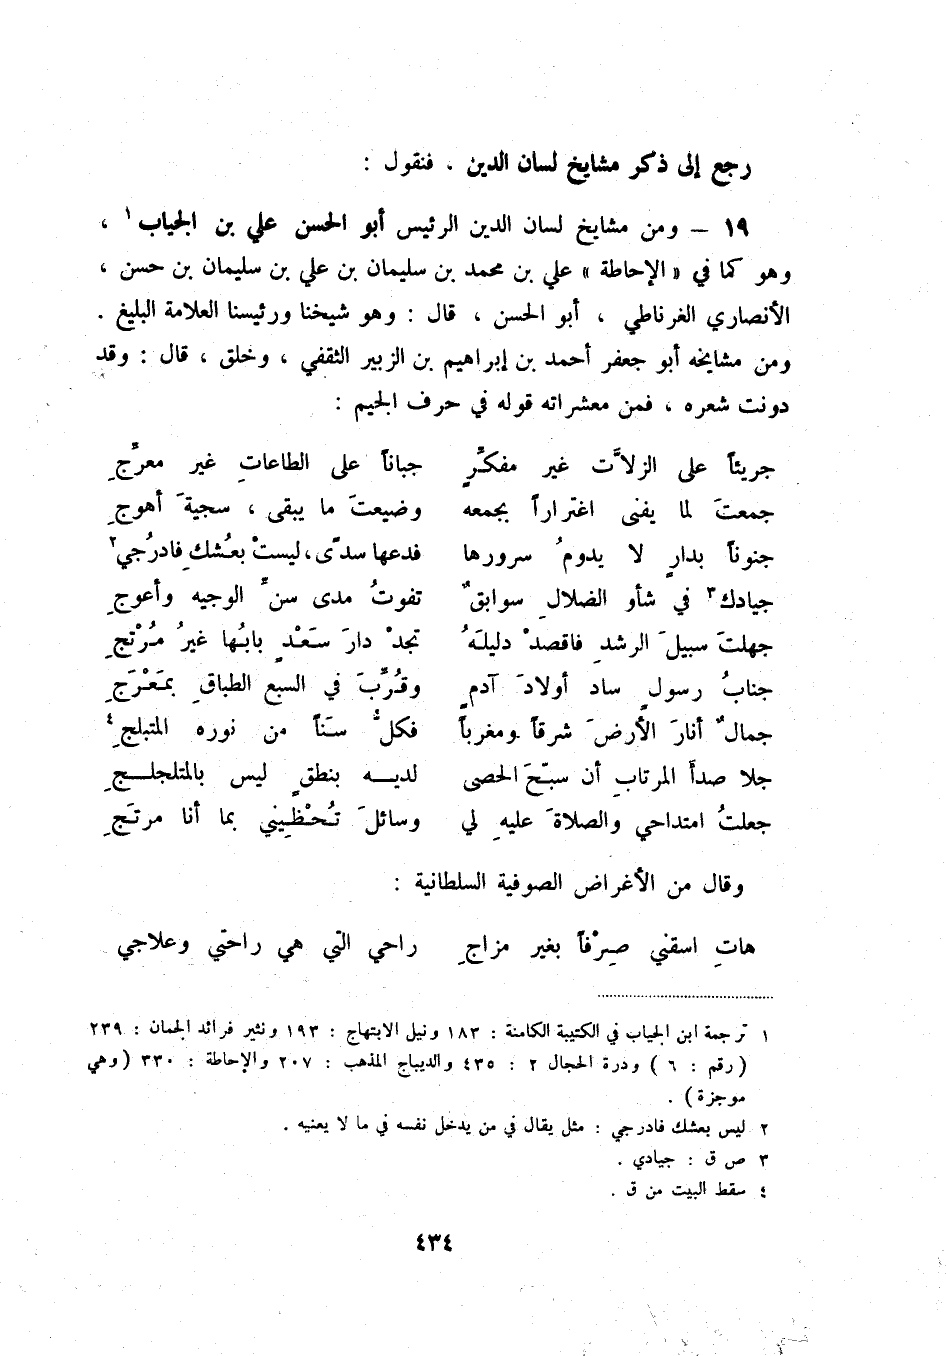 رجع إلى ذكر مشايخ لسان الدين ، فنقول :
١٩ – ومن مشايخ لسان الدين الرئيس أبو الحسن علي بن الجياب ١ ،
وهو كما في « الإحاطة » علي بن محمد بن سليمان بن علي بن سليمان بن حسن ،
الأنصاري الغرناطي ، أبو الحسن ، قال : وهو شيخنا ورئيسنا العلامة البليغ .
ومن مشايخه أبو جعفر أحمد بن إبراهيم بن الزبير الثقفي ، وخلق ، قال : وقد
دونت شعره ، فمن معشراته قوله في حرف الجيم :
جريئاً على الزلاَّت غير مفكّرٍ جباناً على الطاعاتِ غير معرِّجِ
جمعتَ لما يفنى اغتراراً بجمعه وضيعتَ ما يبقى ، سجيةَ أهوجِ
جنوناً بدارٍ لا يدومُ سرورها فدعها سدًى، ليستْ بعُشكِ فادرُجي ٢
جيادك ٣ في شأو الضلالِ سوابقٌ تفوتُ مدى سنِّ الوجيه وأعوجِ
جهلتَ سبيلَ الرشدِ فاقصدْ دليلَهُ تجدْ دارَ سَعْدٍ بابُها غيرُ مُرْتجِ
جنابُ رسولٍ ساد أولادَ آدمٍ وقُرِّبَ في السبع الطباقِ بمَعْرَجِ
جمالٌ أنارَ الأرضَ شرقاً ومغرباً فكلُّ سَناً من نوره المتبلجِ ٤
جلا صدأَ المرتابِ أن سبّحَ الحصى لديه بنطقٍ ليس بالمتلجلجِ
جعلتُ امتداحي والصلاةَ عليهِ لي وسائلَ تُحْظِيني بما أنا مرتَجِ
وقال من الأغراض الصوفية السلطانية :
هاتِ اسقني صِرْفاً بغير مزاجِ راحي التي هي راحتي وعلاجي
١ ترجمة ابن الجياب في الكتيبة الكامنة : ١٨٣ ونيل الابتهاج : ١٩٣ ونثير فرائد الجمان : ٢٣٩
( رقم : ٦ ) ودرة الحجال ٢ : ٤٣٥ والديباج المذهب : ٢٠٧ والإحاطة : ٣٣٠ ( وهي
موجزة ) .
٢ ليس بعشك فادرجي : مثل يقال في من يدخل نفسه في ما لا يعنيه .
٣ ص ق : جيادي .
٤ سقط البيت من ق .
٤٣٤